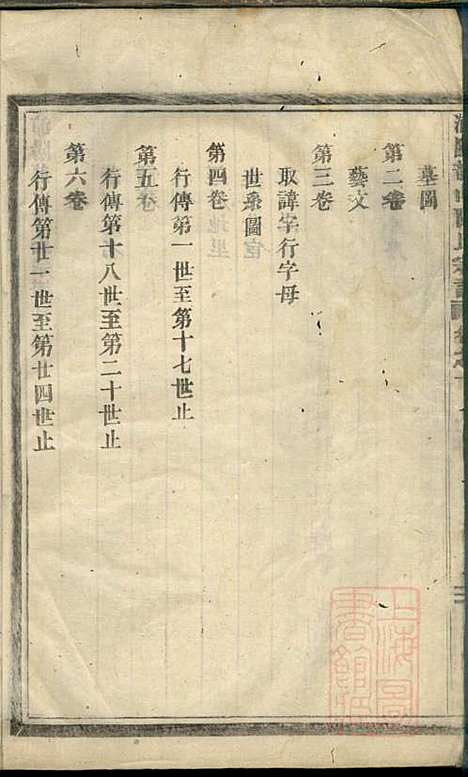 墓圖
第二卷
藝文
第三卷
取諱字行字母
世系圖
第四卷
行傳第一世至第十七世止
第五卷
行傳第十八世至第二十世止
第六卷
行傳第廿一世至第廿四世止
上海圖書館藏